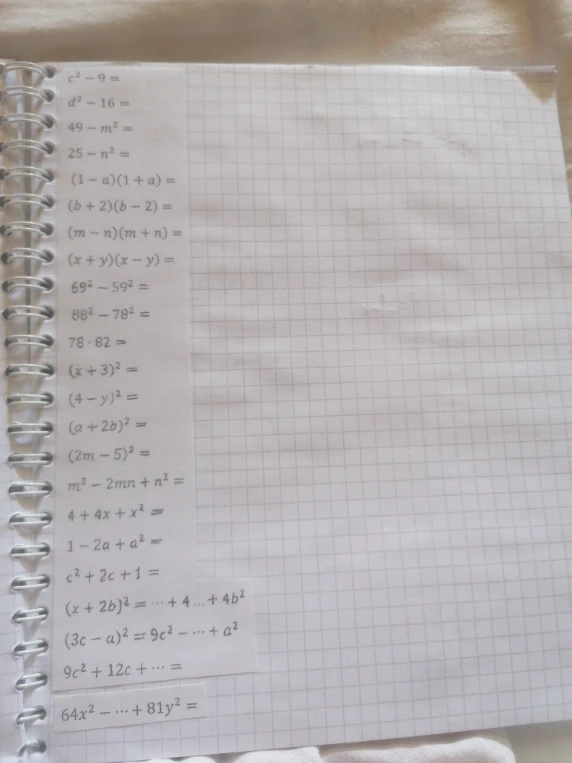 c² − 9 =
d² − 16 =
49 − m² =
25 − n² =
(1 − a)(1 + a) =
(b + 2)(b − 2) =
(m − n)(m + n) =
(x + y)(x − y) =
69² − 59² =
88² − 78² =
78 · 82 =
(x + 3)² =
(4 − y)² =
(a + 2b)² =
(2m − 5)² =
m² − 2mn + n² =
4 + 4x + x² =
1 − 2a + a² =
c² + 2c + 1 =
(x + 2b)² = ⋯ + 4 … + 4b²
(3c − a)² = 9c² − ⋯ + a²
9c² + 12c + ⋯ =
64x² − ⋯ + 81y² =